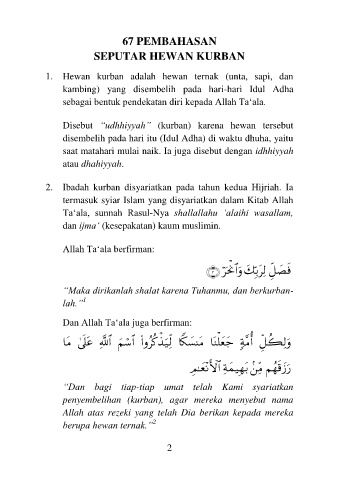 67 PEMBAHASAN
SEPUTAR HEWAN KURBAN
1. Hewan kurban adalah hewan ternak (unta, sapi, dan
kambing) yang disembelih pada hari-hari Idul Adha
sebagai bentuk pendekatan diri kepada Allah Ta‘ala.
Disebut “udhhiyyah” (kurban) karena hewan tersebut
disembelih pada hari itu (Idul Adha) di waktu dhuha, yaitu
saat matahari mulai naik. Ia juga disebut dengan idhhiyyah
atau dhahiyyah.
2. Ibadah kurban disyariatkan pada tahun kedua Hijriah. Ia
termasuk syiar Islam yang disyariatkan dalam Kitab Allah
Ta‘ala, sunnah Rasul-Nya shallallahu ‘alaihi wasallam,
dan ijma‘ (kesepakatan) kaum muslimin.
Allah Ta‘ala berfirman:
فَصَلِّ لِرَبِّكَ وَٱنۡحَرۡ ٢
“Maka dirikanlah shalat karena Tuhanmu, dan berkurban-
lah.”1
Dan Allah Ta‘ala juga berfirman:
وَلِكُلِّ أُمَّةٖ جَعَلۡنَا مَنسَكٗا لِّيَذۡكُرُواْ ٱسۡمَ ٱللَّهِ عَلَىٰ مَا
رَزَقَهُم مِّنۢ بَهِيمَةِ ٱلۡأَنۡعَٰمِ
“Dan bagi tiap-tiap umat telah Kami syariatkan
penyembelihan (kurban), agar mereka menyebut nama
Allah atas rezeki yang telah Dia berikan kepada mereka
berupa hewan ternak.”2
2